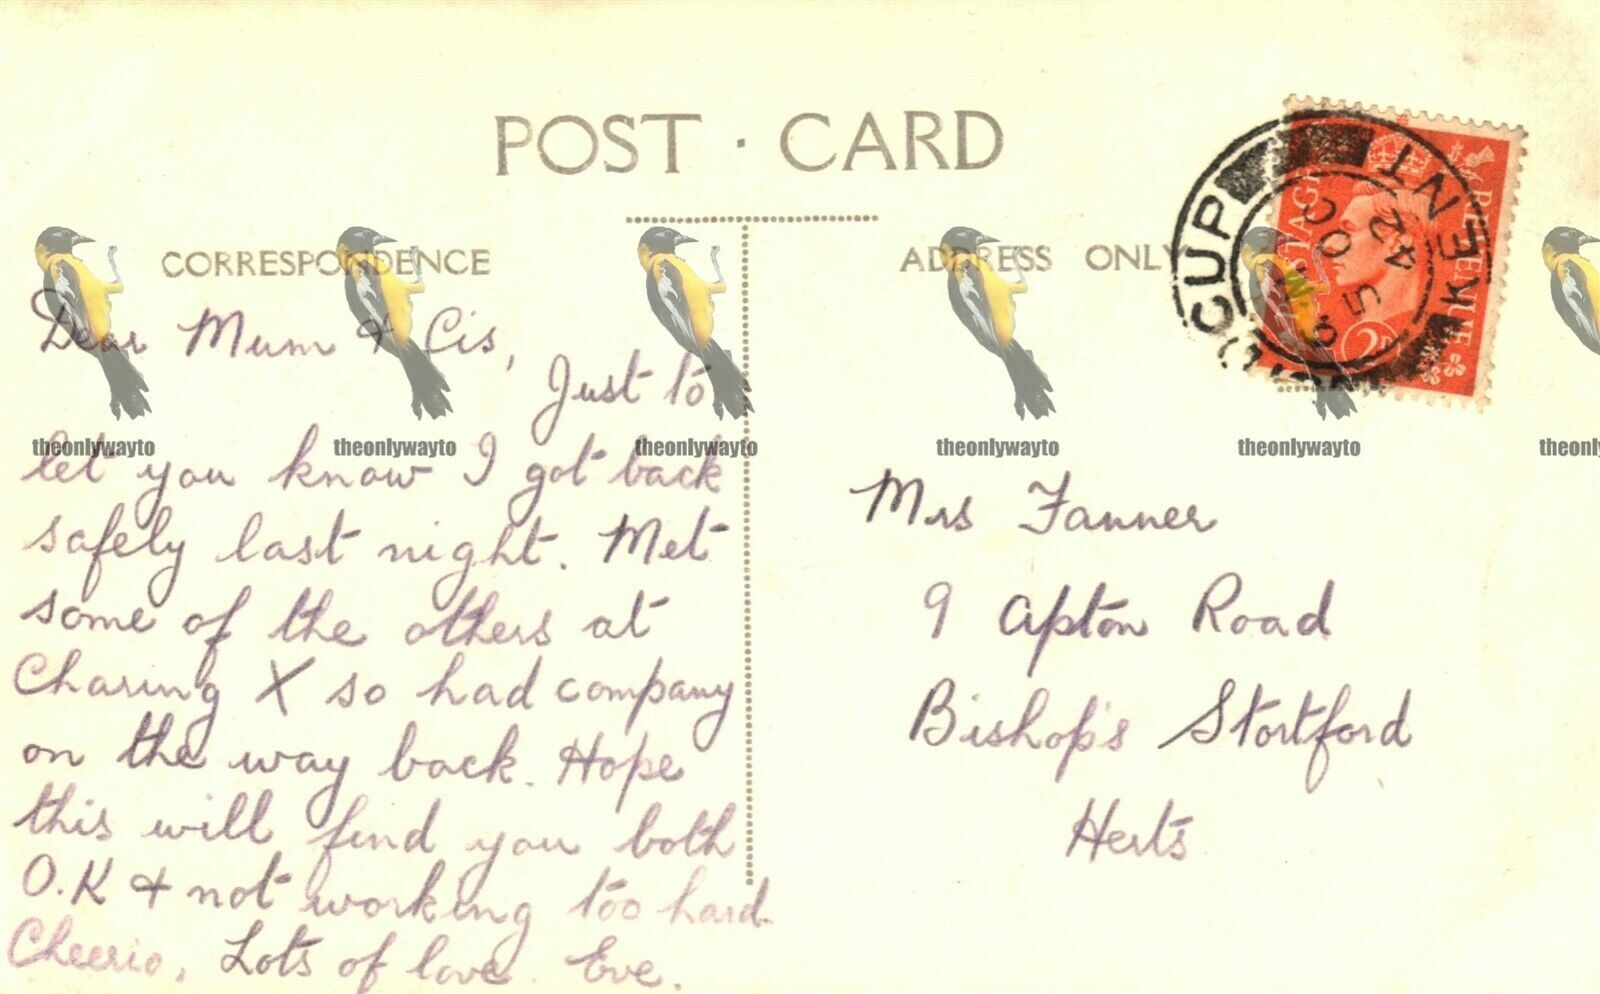 POST · CARD
CORRESPONDENCE
Dear Mum & Cis,
Just to
let you know I got back
safely last night. Met
some of the others at
Charing X so had company
on the way back. Hope
this will find you both
O.K & not working too hard.
Cheerio, Lots of love. Eve.
ADDRESS ONLY
CUP
KENT
OC
42
POSTAGE REVENUE
2D
Mrs Fanner
9 Apton Road
Bishop's Stortford
Herts
theonlywayto theonlywayto theonlywayto theonlywayto theonlywayto theonly